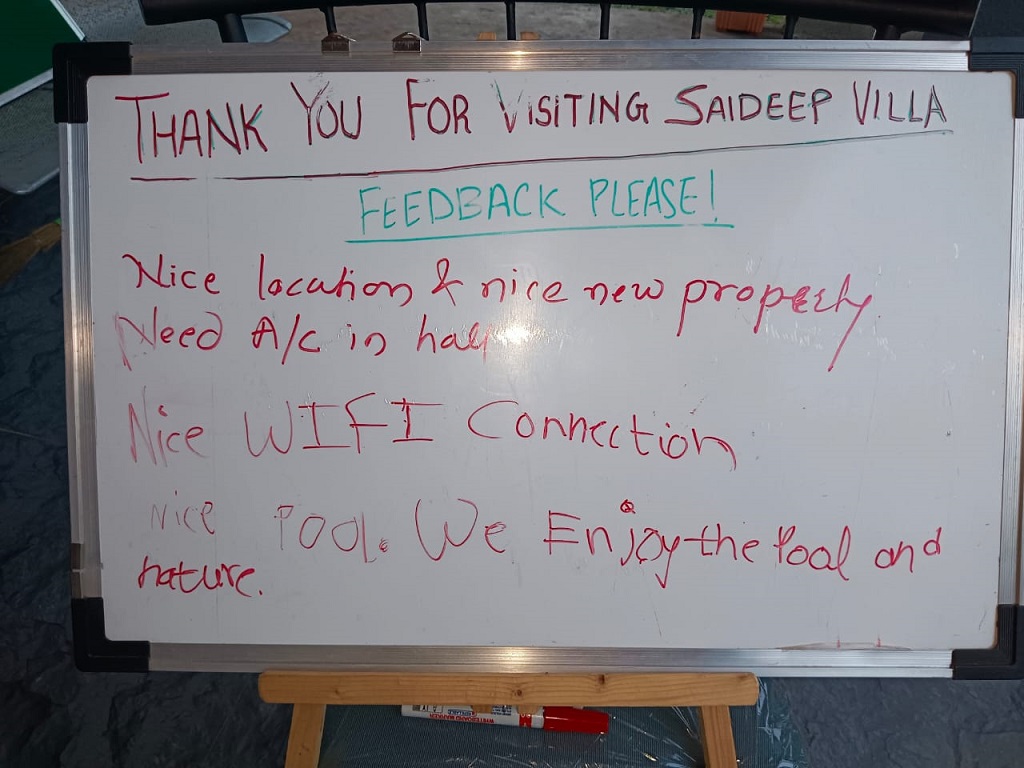 THANK YOU FOR VISITING SAIDEEP VILLA
FEEDBACK PLEASE!
Nice location & nice new property
Need A/C in hall
Nice WIFI Connection
Nice POOL. We Enjoy the Pool and
nature.
WHITEBOARD MARKER